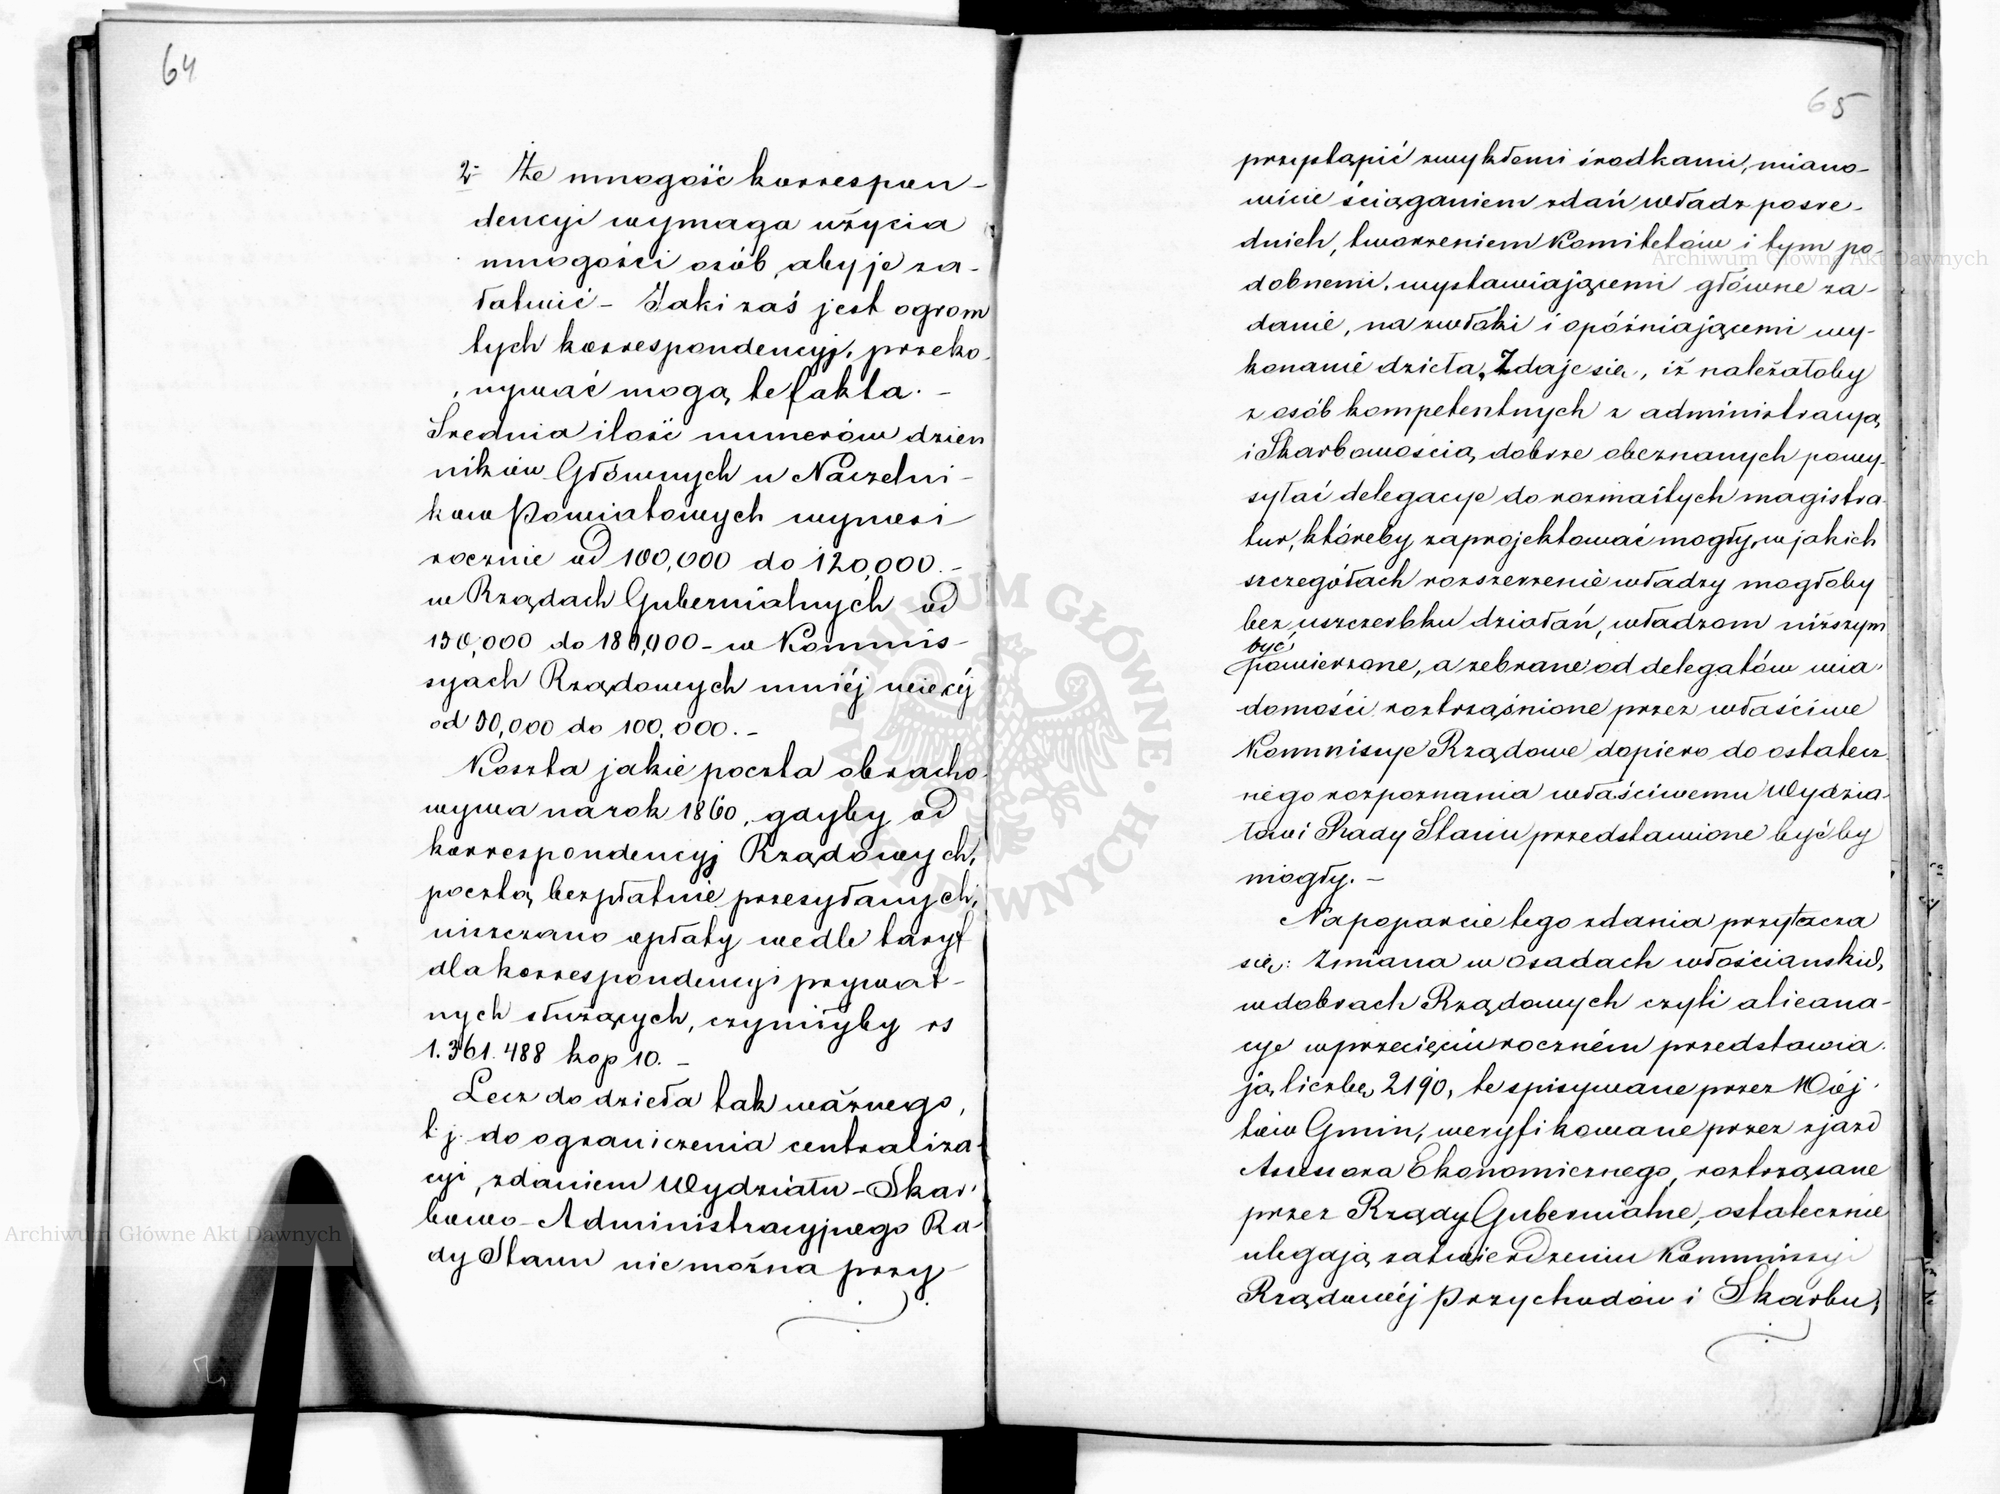 64
2- Że mnogość korrespon-
dencyi wymaga użycia
mnogości osób, aby je za-
łatwić – Jaki zaś jest ogrom
tych korrespondencyj, przeko-
nywać mogą te fakta. –
Średnia ilość numerów dzien
ników Głównych u Naczelni-
ków Powiatowych wynosi
rocznie od 100,000 do 120,000. –
w Rządach Gubernialnych od
150,000 do 180,000 – w Kommis-
syach Rządowych mniéj więcéj
od 90,000 do 100,000. –
Koszta jakie poczta obracho-
wywa na rok 1860, gdyby od
korrespondencyj Rządowych,
pocztą bezpłatnie przesyłanych,
uiszczano opłaty wedle taryf
dla korrespondencyi prywat-
nych służących, czyniłyby rs
1.361.488 kop 10. –
Lecz do dzieła tak ważnego,
t. j. do ograniczenia centraliza-
cyi, zdaniem Wydziału-Skar-
bowo-Administracyjnego Ra-
dy Stanu nie można przy-
65
przystąpić zwykłemi środkami, miano-
wicie ściąganiem zdań władz pośre-
dnich, tworzeniem Komitetów i tym po-
dobnemi, wystawiającemi główne za-
danie, na zwłoki i opóźniającemi wy-
konanie dzieła, Zdaje się, iż należałoby
z osób kompetentnych z administracyą
i Skarbowością dobrze obeznanych powy-
syłać delegacye do rozmaitych magistra-
tur, któreby zaprojektować mogły, w jakich
szczegółach rozszerzenie władzy mogłoby
bez uszczerbku działań, władzom niższym
być
powierzone, a zebrane od delegatów wia-
domości roztrząśnione przez właściwe
Kommissye Rządowe dopiero do ostatecz
nego rozpoznania właściwemu Wydzia-
łowi Rady Stanu przedstawione być by
mogły. –
Na poparcie tego zdania przytacza
się: Zmiana w osadach włościańskich
w dobrach Rządowych czyli aliena-
cye w przecięciu roczném przedstawia-
ją liczbę 2190, te spisywane przez Wój-
tów Gmin, weryfikowane przez zjazd
Assessora Ekonomicznego, roztrząsane
przez Rządy Gubernialne, ostatecznie
ulegają zatwierdzeniu Kommissyi
Rządowéj Przychodów i Skarbu,
ARCHIWUM GŁÓWNE AKT DAWNYCH
Archiwum Główne Akt Dawnych
Archiwum Główne Akt Dawnych